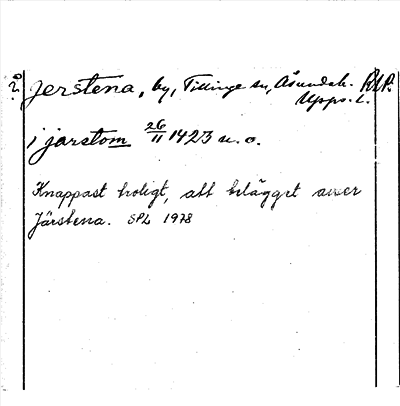 Jerstena, by, Tillinge sn, Åsundah. RAP.
Upps. l.
i jarstom 26/11 1423 u. o.
Knappast troligt, att belägget avser
Järstena. SPL 1978